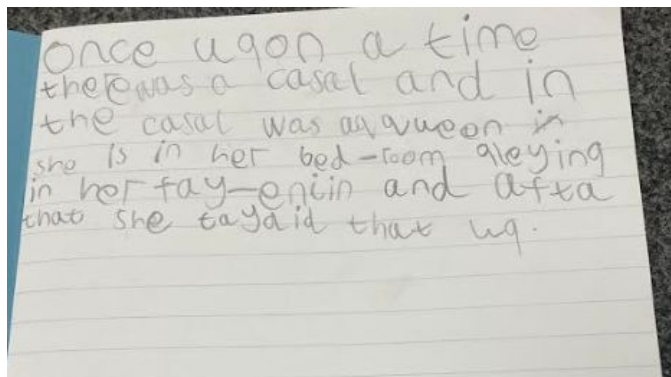 once uqon a time
therewas a casal and in
the casal was an queen in
she is in her bed-room qleying
in her fay-eniin and afta
that she taydid that uq.